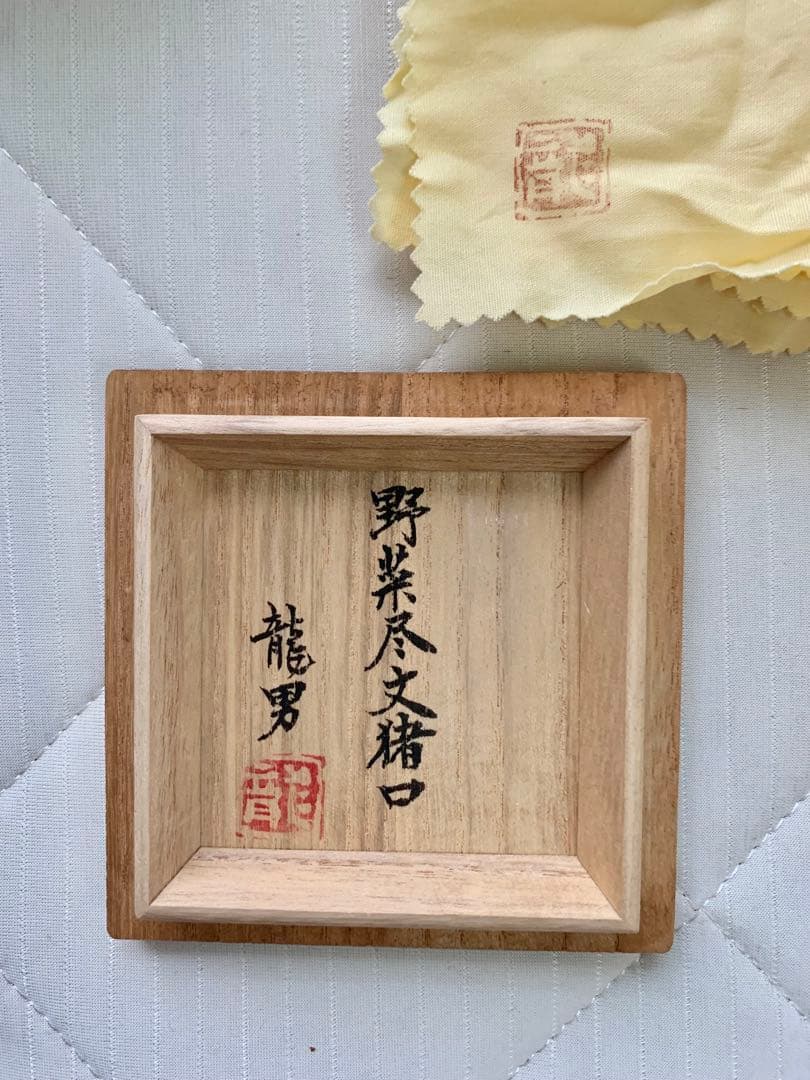 野菜尽文猪口
龍男